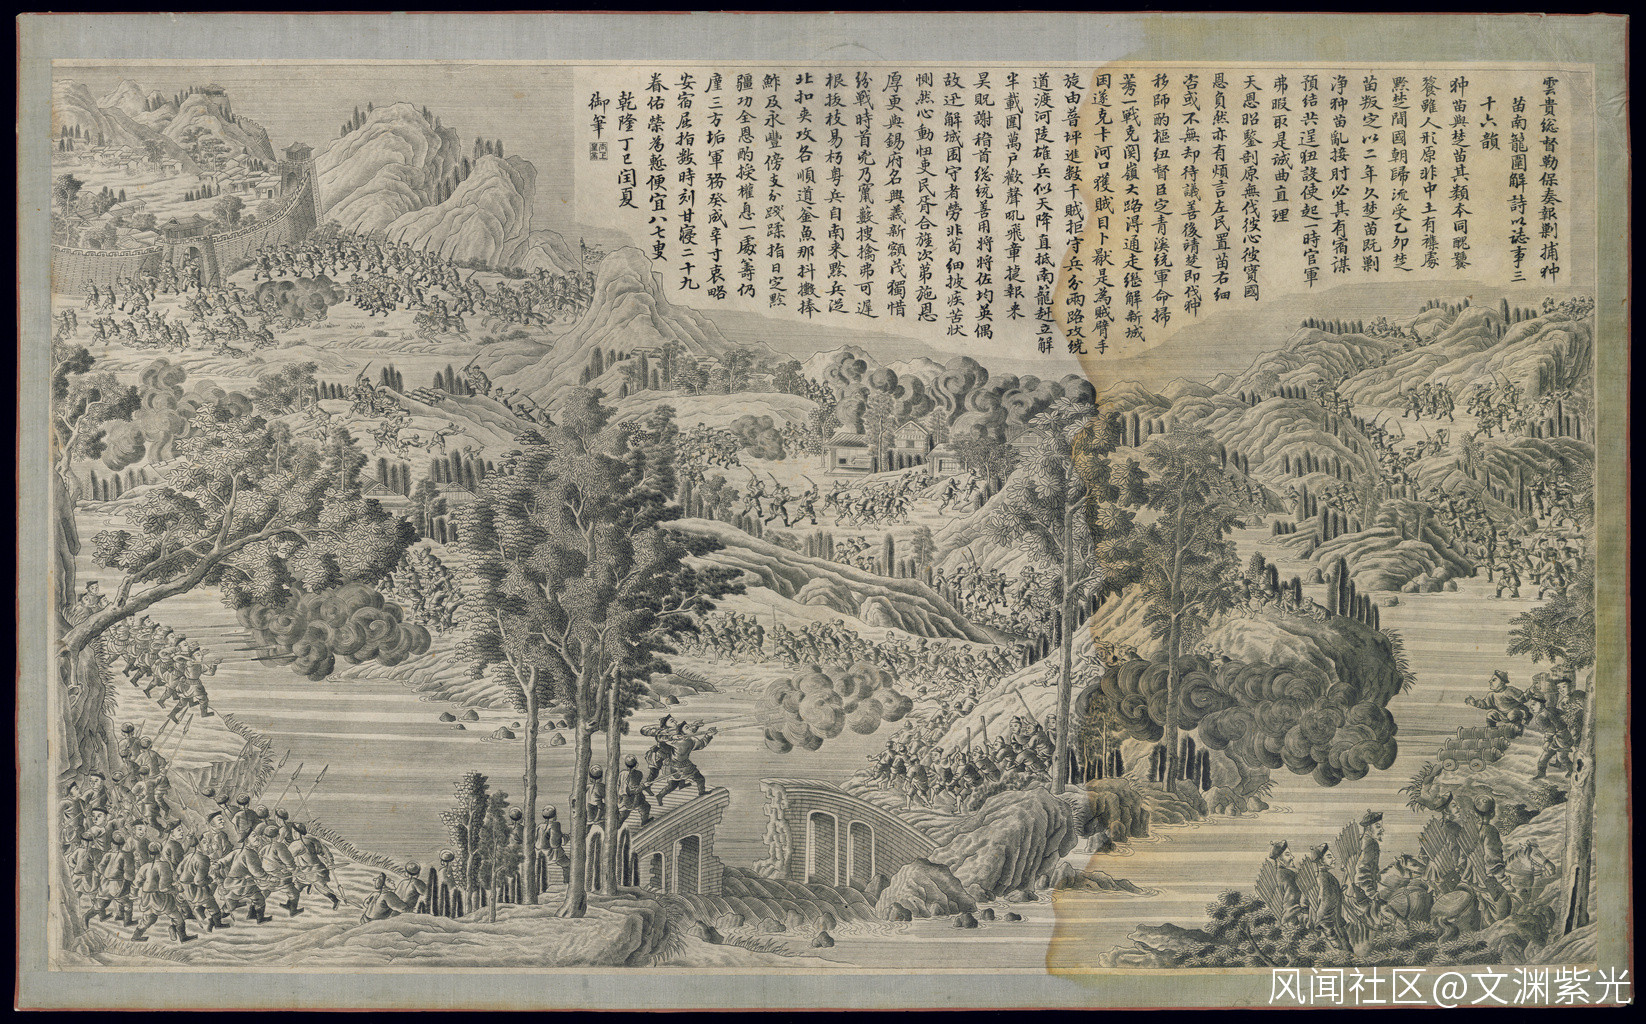 雲貴總督勒保奏報剿捕狆
苗南籠圍解詩以誌事三
十六韻
狆苗與楚苗其類本同醜鷖
餮雖人形原非中土有襟處
黔楚間國朝歸流受乙卯楚
苗叛定以二年久楚苗既剿
淨狆苗亂接肘必其有宿謀
預結共逞狃設使起一時官軍
弗暇取是誠曲直理
天恩昭鑒剖原無伐彼心彼實國
恩負然亦有煩言左民置苗右細
咨或不無却待議善後靖楚即伐狆
移師酌樞紐督臣定青溪統軍命掃
莠一戰克関嶺大路淂通走継解新城
困遂克卡河口獲賊目卜獃是為賊臂手
旋由普坪進数千賊拒守兵分兩路攻繞
道渡河陡雄兵似天降直抵南籠赶立解
半載圍萬戶歡聲吼飛章捷報来
昊貺謝稽首総統善用將將佐均英偶
故迅解城围守者勞非苟細披疾苦狀
惻然心動忸吏民胥合旌次第施恩
厚更與錫府名興義新額茂獨惜
紛戦時首兇乃竄薮搜擒弗可遲
根拔枝易朽粤兵自南来黔兵從
北扣夹攻各順道釜魚那抖擻捧
鮓及永豐傍支分踐蹂指日定黔
疆功全恩酌授權息一處籌仍
廑三方垢軍務癸咸辛寸衷略
安宿屈指数時刻甘寢二十九
眷佑榮為慙便宜八七叟
乾隆丁巳閏夏
御筆
风闻社区@文渊紫光